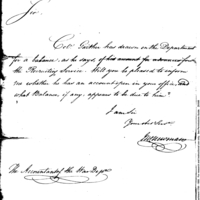 Sir
Col. Gaither has drawn on the Department
for a balance, as he says, of his account for advances for
the Recruiting Service. Will you be pleased to inform
me whether he has an account open in your office, and
what Balance, if any, appears to be due to him?
I am Sir
Your obt Servt
The Accountant of the War Dept